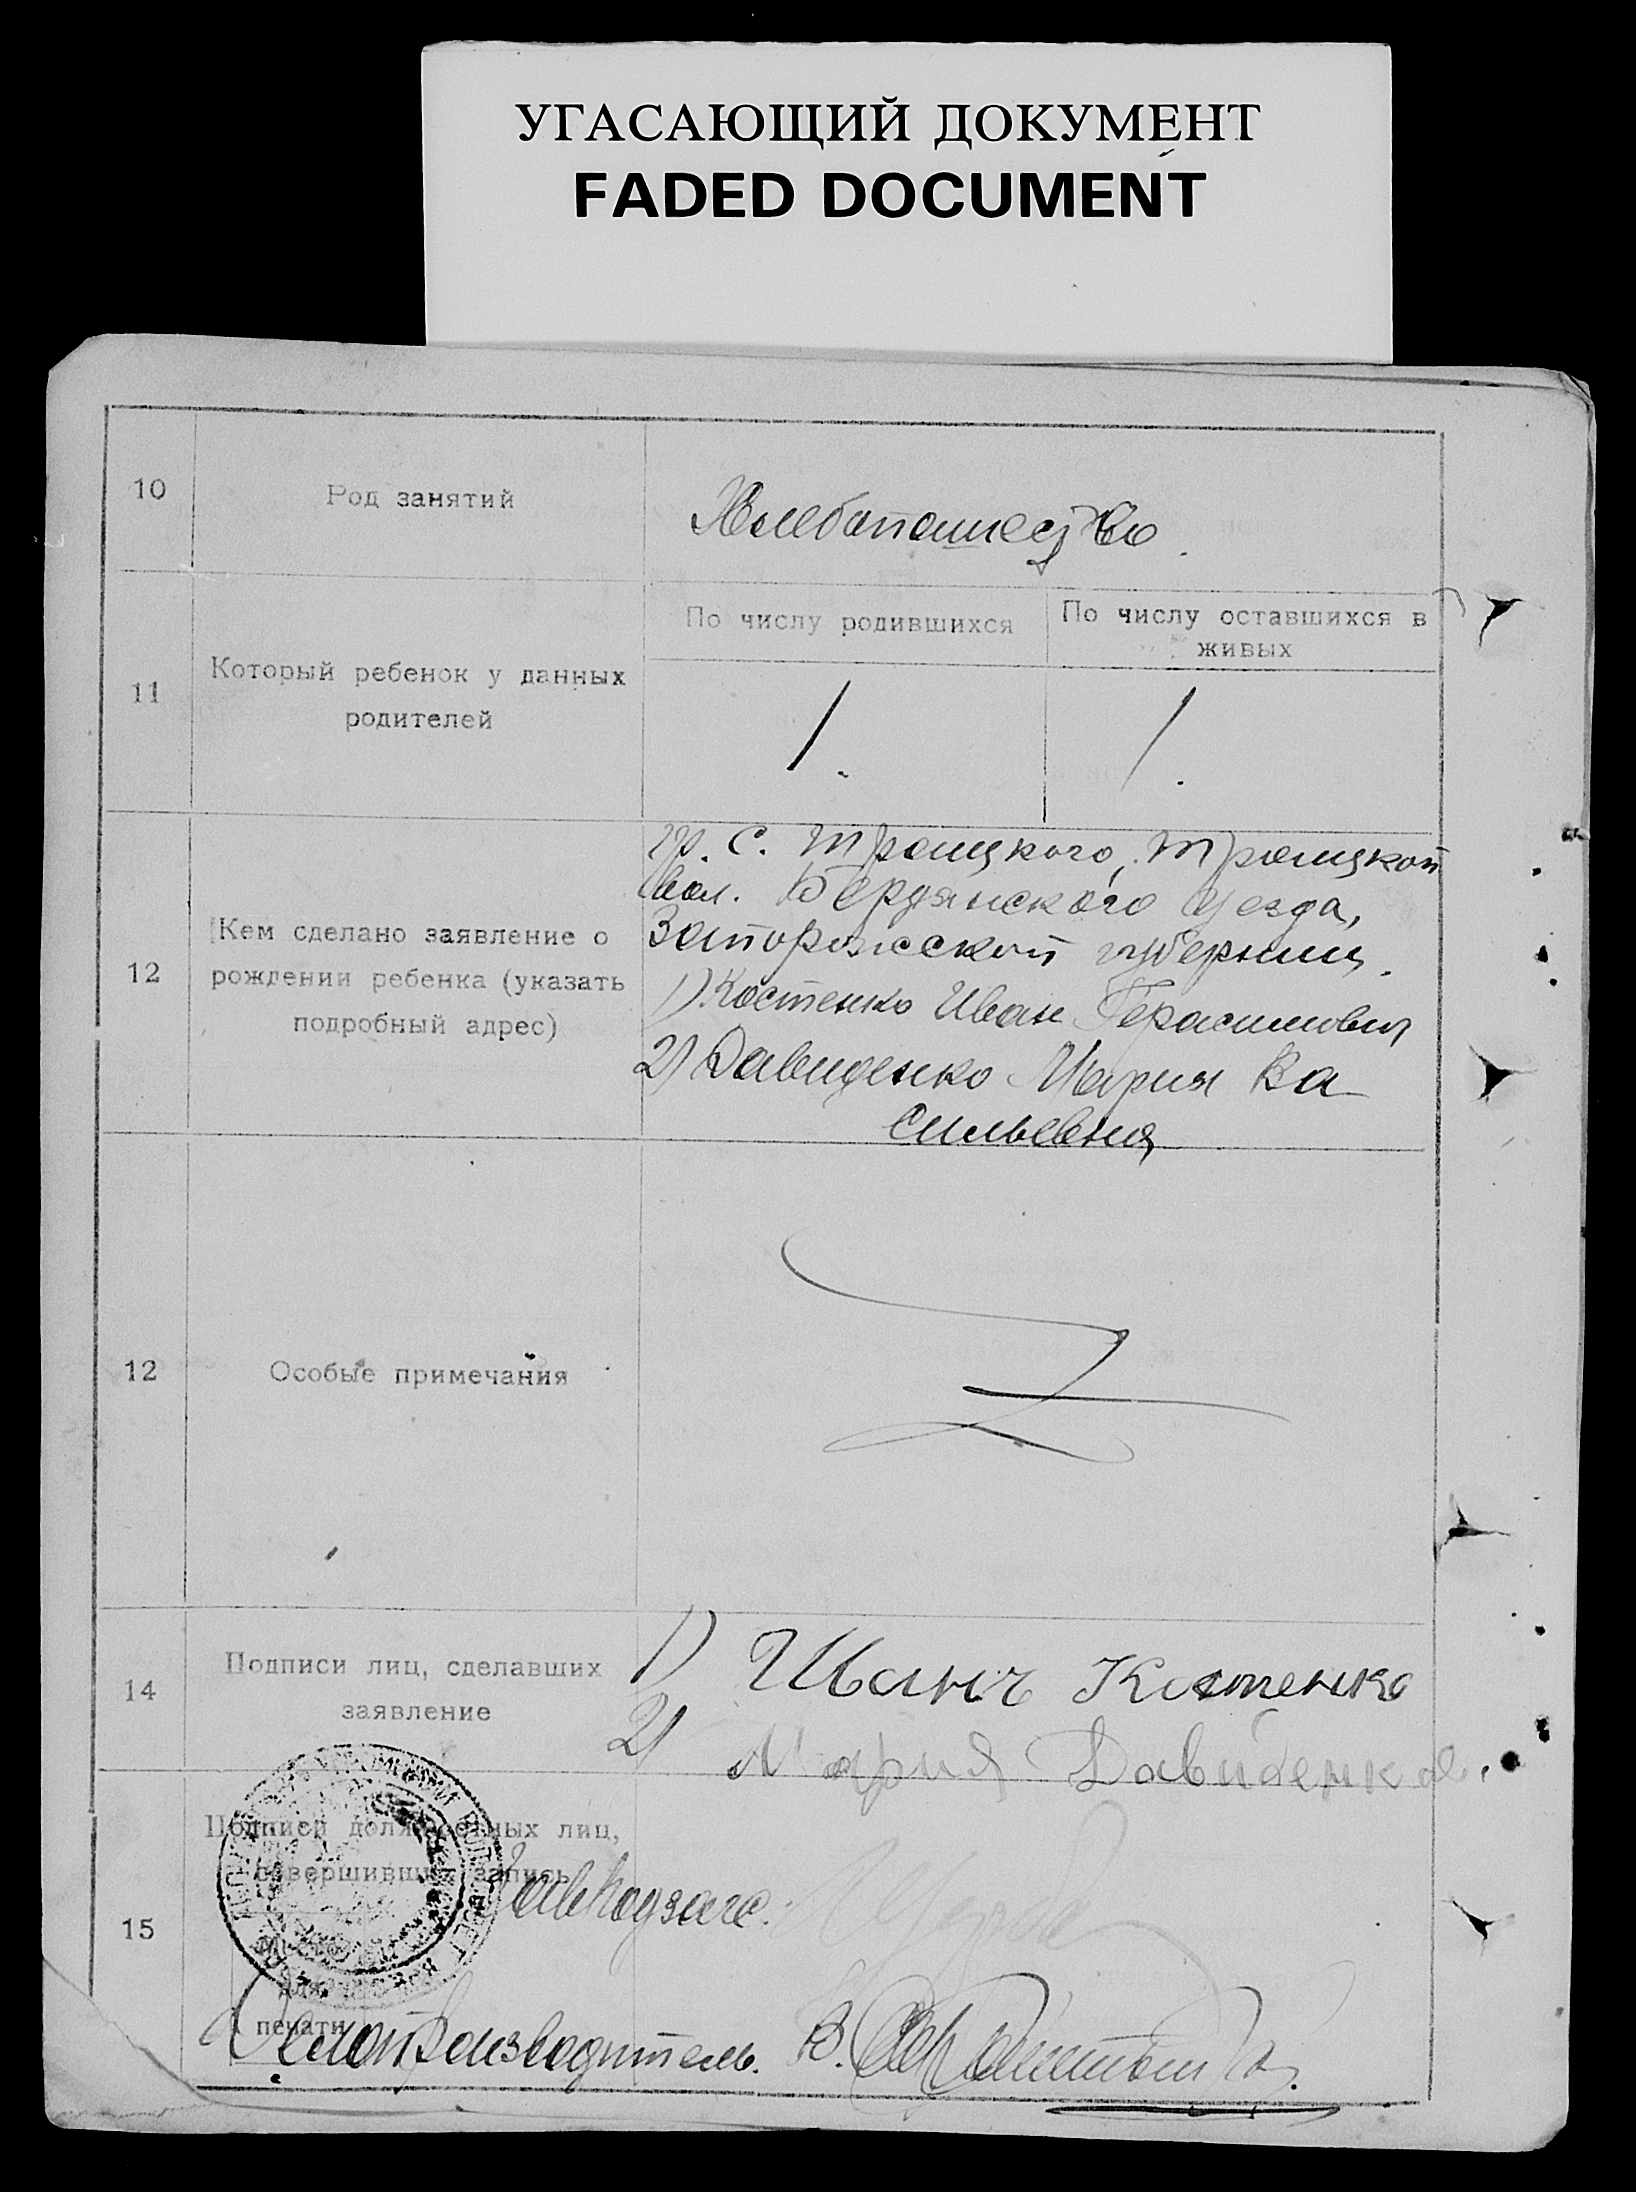 УГАСАЮЩИЙ ДОКУМЕНТ
FADED DOCUMENT
10
Род занятий
Хлебопашество.
11
Который ребенок у данных
родителей
По числу родившихся
По числу оставшихся в
живых
1.
1.
12
Кем сделано заявление о
рождении ребенка (указать
подробный адрес)
гр. с. Троицкого, Троицкой
вол. Бердянского уезда,
Запорожской губернии.
1) Костенко Иван Герасимович
2) Давиденко Мария Ва
сильевна
12
Особые примечания
14
Подписи лиц, сделавших
заявление
1) Иванъ Костенко
2) Мария Давиденко.
15
Подписи должностных лиц,
совершивших запись
Завподзагс.
Место
для
печати
Делопроизводитель. В.